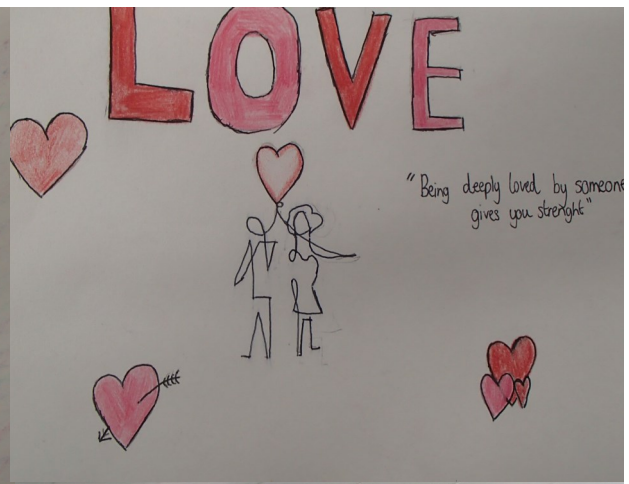 LOVE
"Being deeply loved by someone
gives you strenght"